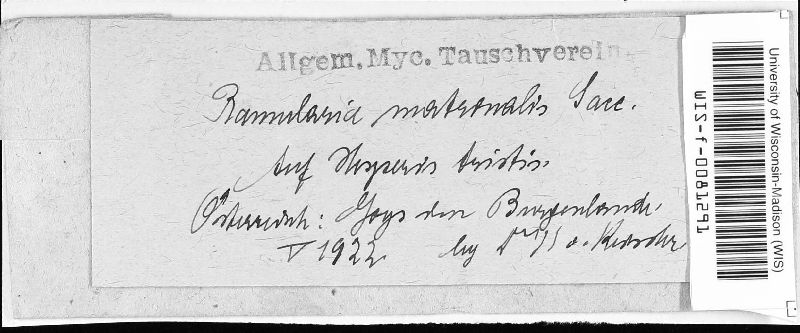 Allgem. Myc. Tauschverein.
Ramularia matronalis Sacc.
Auf Hesperis tristis.
Österreich: Goys den Burgenlande.
V 1922 leg Dr
University of Wisconsin-Madison (WIS)
WIS-f-0081291